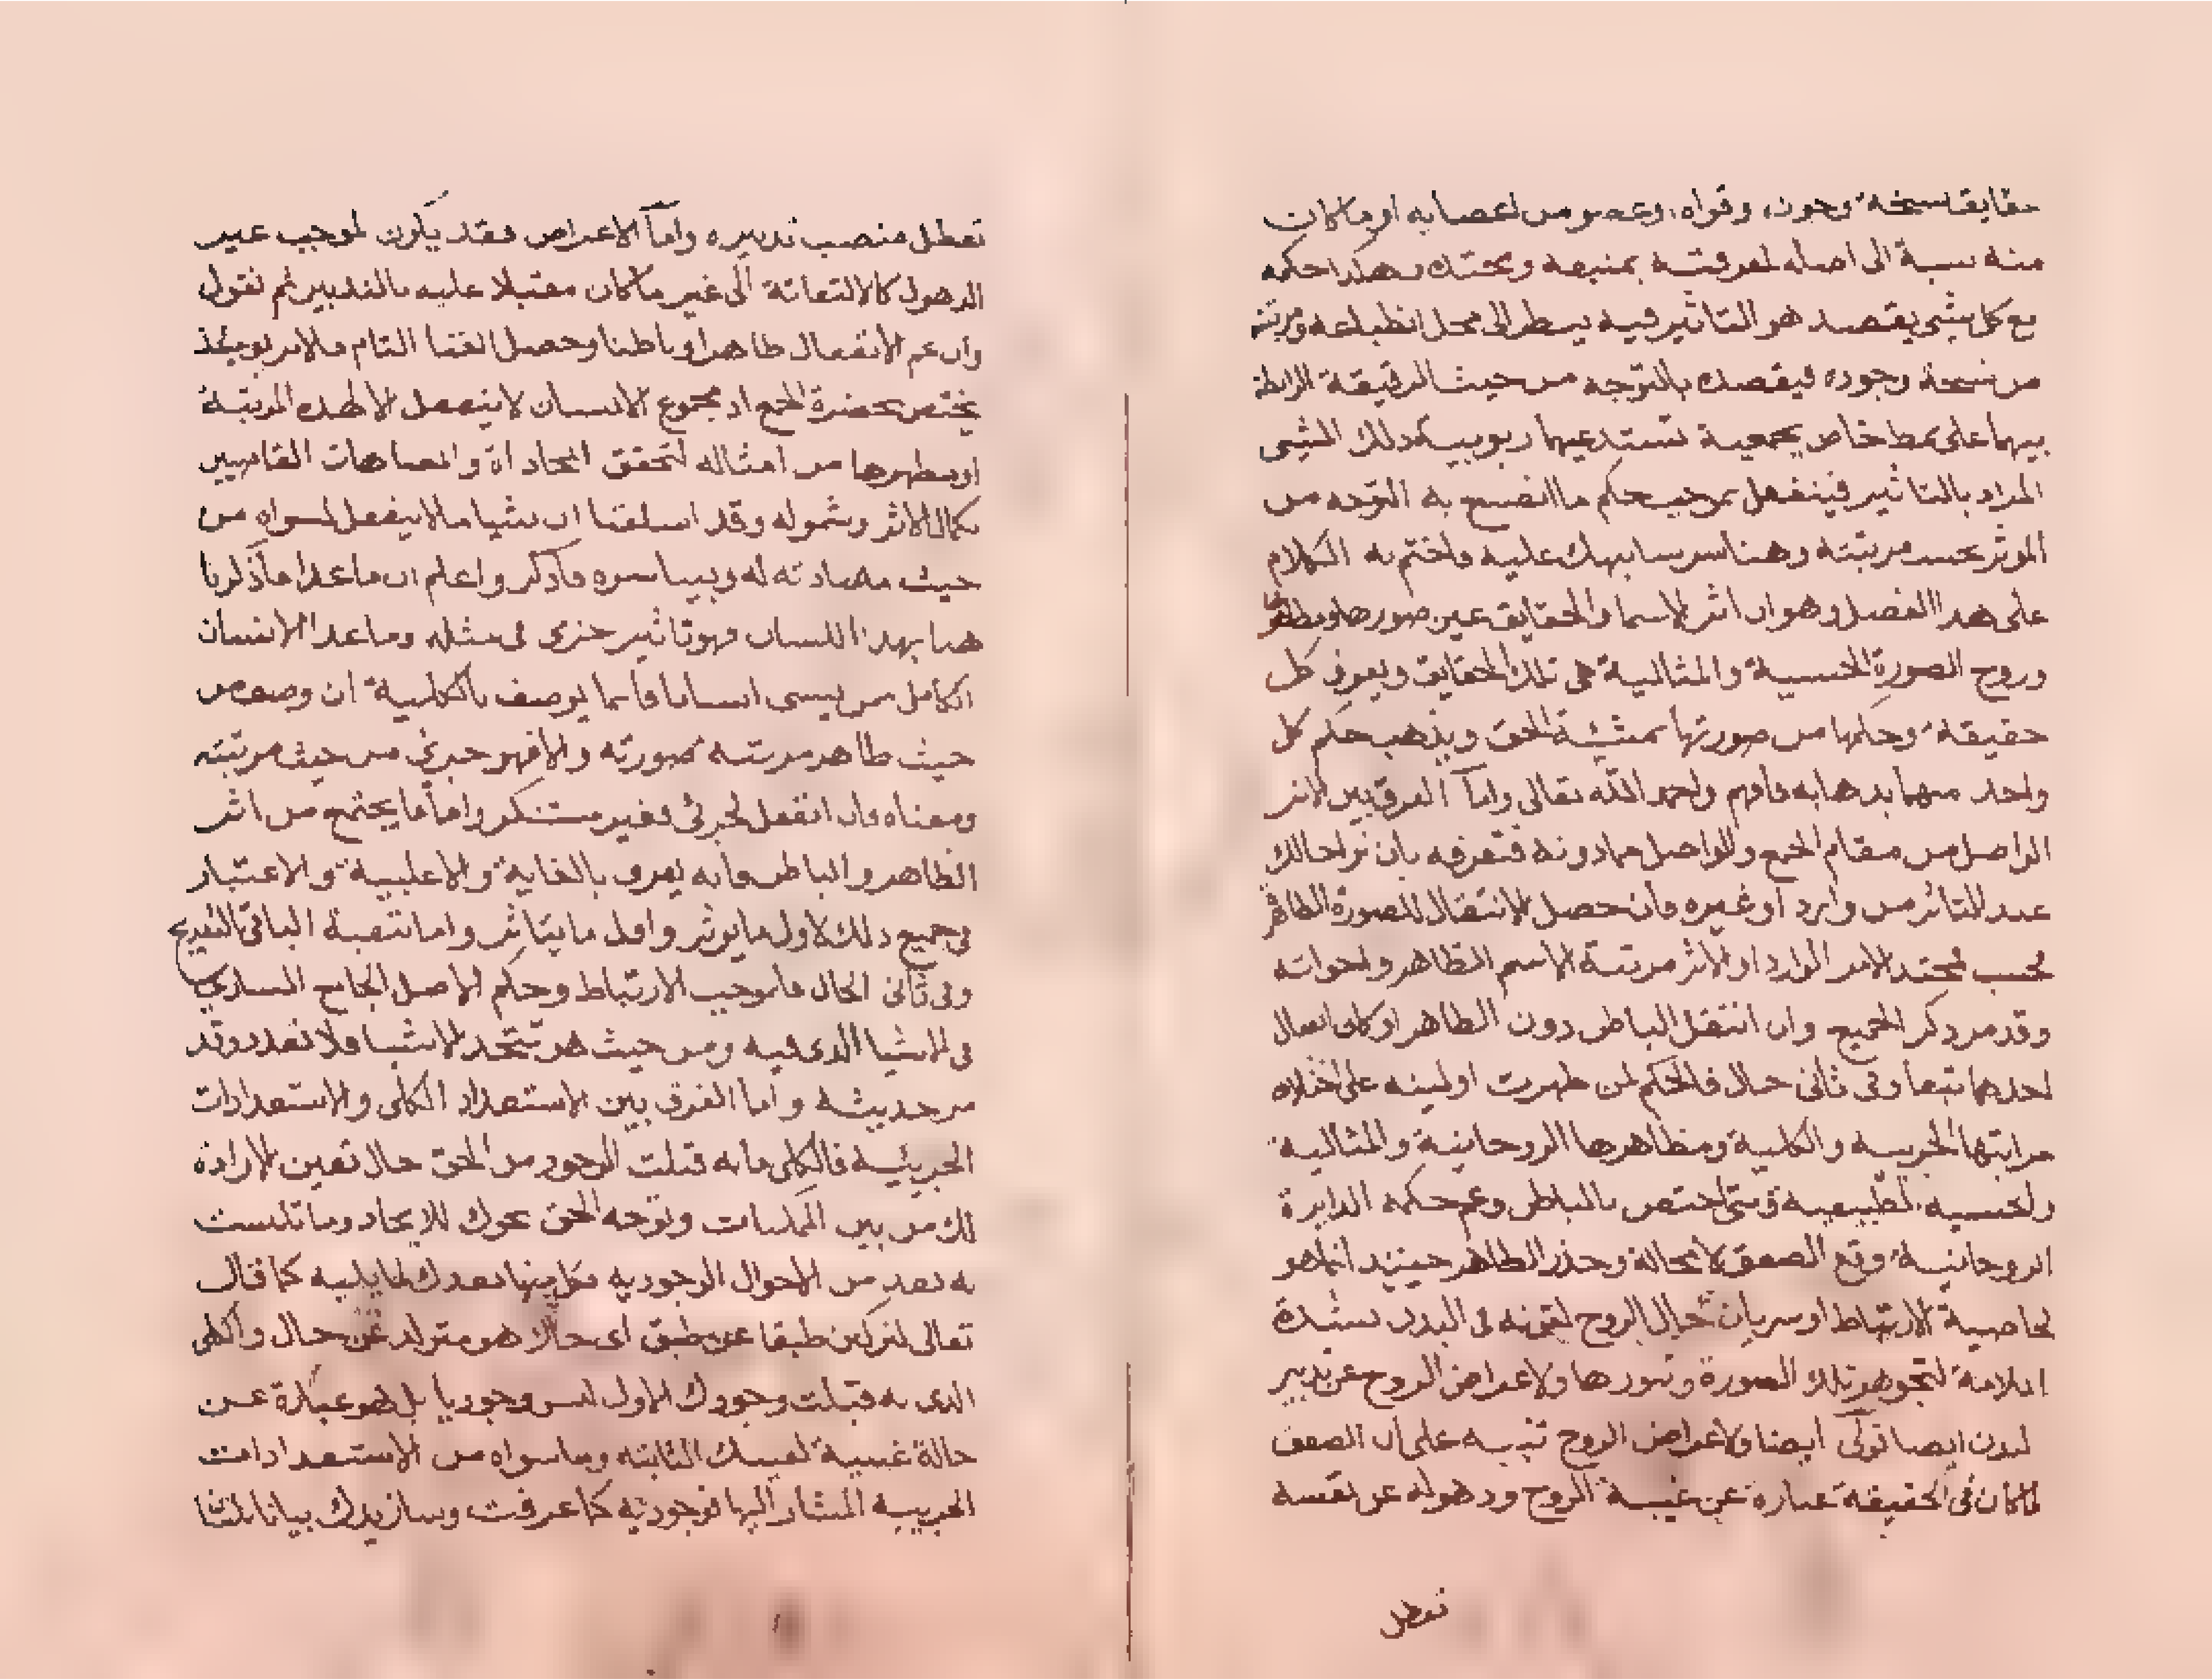 حقايقا سخه وجون، وقواه، وعصو من اعصايه او ما كان
منه نسبة الى اصله لمعرفته بمنبعه ومحتده وهكذا حكمه
مع كل شي يقصد هو التاثير فيه ينظر الى محل انطباعه ومرتبته
من نسخة وجوده فيقصده بالتوجه من حيث الرقيقة الرابطة
بينهما على نمط خاص بجمعية تستدعيها ربوبيته ذلك الشي
المراد بالتاثير فينفعل بموجب حكم ما انصبع به التوجه من
الموثر بحسب مرتبته وهنا سر سانبهك عليه واختم به الكلام
على هذا الفصل وهو ان اثر الاسما والحقايق عين صورها ومظاهرها
وروح الصورة الحسية والمثالية هي تلك الحقايق ويعرف كل
حقيقة وحكمها من صورتها بمشيئة الحق ويذهب حكم كل
واحد منهما بذهابه فافهم واحمد الله تعالى واما الفرق بين الاثر
الواصل من مقام الجمع والواصل مما دونه فتعرفه بان ترى حالك
عند التاثر من وارد او غيره فان حصل الانتقال للصورة الظاهرة
بحسب محتد الامر الوارد او الاثر مرتبة الاسم الظاهر واخواته
وقد مر ذكر الجميع وان انتقل الباطن دون الظاهر او كان انفعال
احدهما تبعا وفي ثاني حال فالحكم لمن ظهرت اوليته على اختلاف
مراتبها الجزييه والكلية ومظاهرها الروحانية والمثالية
والحسيه الطبيعية ومتى اختص بالباطن وعم حكمه الدايرة
الروحانية وقع الصعق لا محالة وحذر الظاهر حينيذ انما هو
لخاصية الارتباط او سريان حال الروح لقوته في البدن بشدة
الملامة لتجوهر تلك الصورة وتنورها ولاعراض الروح عن تدبير
البدن ايضا قولي ايضا ولاعراض الروح تنبيه على ان الصعق
لما كان في الحقيقة عبارة عن غيبة الروح وذهوله عن نفسه
تعطل
تعطل منصب تدبيره واما الاعراض فقد يكون لموجب غير
الذهول كالالتفاتة الى غير ما كان مقبلا عليه بالتدبير ثم نقول
وان عم الانفعال ظاهرا وباطنا وحصل الفنا التام فالامر يوميذ
يختص بحضرة الجمع اذ مجموع الانسان لا ينفعل الا لهذه المرتبة
او مظهرها من امثاله لتحقق المحاذاة والمضاهات القاضيين
بكمال الاثر وشموله وقد اسلفنا ان شيا ما لا ينفعل لسواه من
حيث مضادته له وبينا سره فاذكر واعلم ان ما عدا ما ذكرنا
هنا بهذا اللسان فهو تاثير جزي في مثله وما عدا الانسان
الكامل ممن يسمى انسانا فانما يوصف بالكلية ان وصف من
حيث ظاهر مرتبته بصورته والا فهو جزي من حيث مرتبته
ومعناه فان انفعل لجزئي فغير مستنكر واما ما يجتمع من اثر
الظاهر والباطن فانه يعرف بالغاية والاغلبية والاعتبار
في جميع ذلك لاول ما يوثر واول ما يتاثر واما تتعبة الباقي التفريع
وفي ثاني الحال فلموجب الارتباط وحكم الاصل الجامع الساري
في الاشيا الذي فيه ومن حيث هو تتحد الاشيا فلا تعدد وقد
مر حديثه واما الفرق بين الاستعداد الكلى والاستعدادات
الجزييه فالكلى ما به قبلت الوجود من الحق حال تعين الارادة
لك من بين الممكنات وتوجه الحق نحوك للايجاد وما تلبست
به بعد من الاحوال الوجوديه فكل منها يعدك لما يليه كما قال
تعالى لتركبن طبقا عن طبق اى حالا هو متولد عن حال والكلى
الذى به قبلت وجودك الاول ليس وجوديا بل هو عبارة عن
حالة غيبية لعينك الثابته وما سواه من الاستعدادات
الجزييه المشار اليها فوجوديه كما عرفت وسازيدك بيانا لهذا